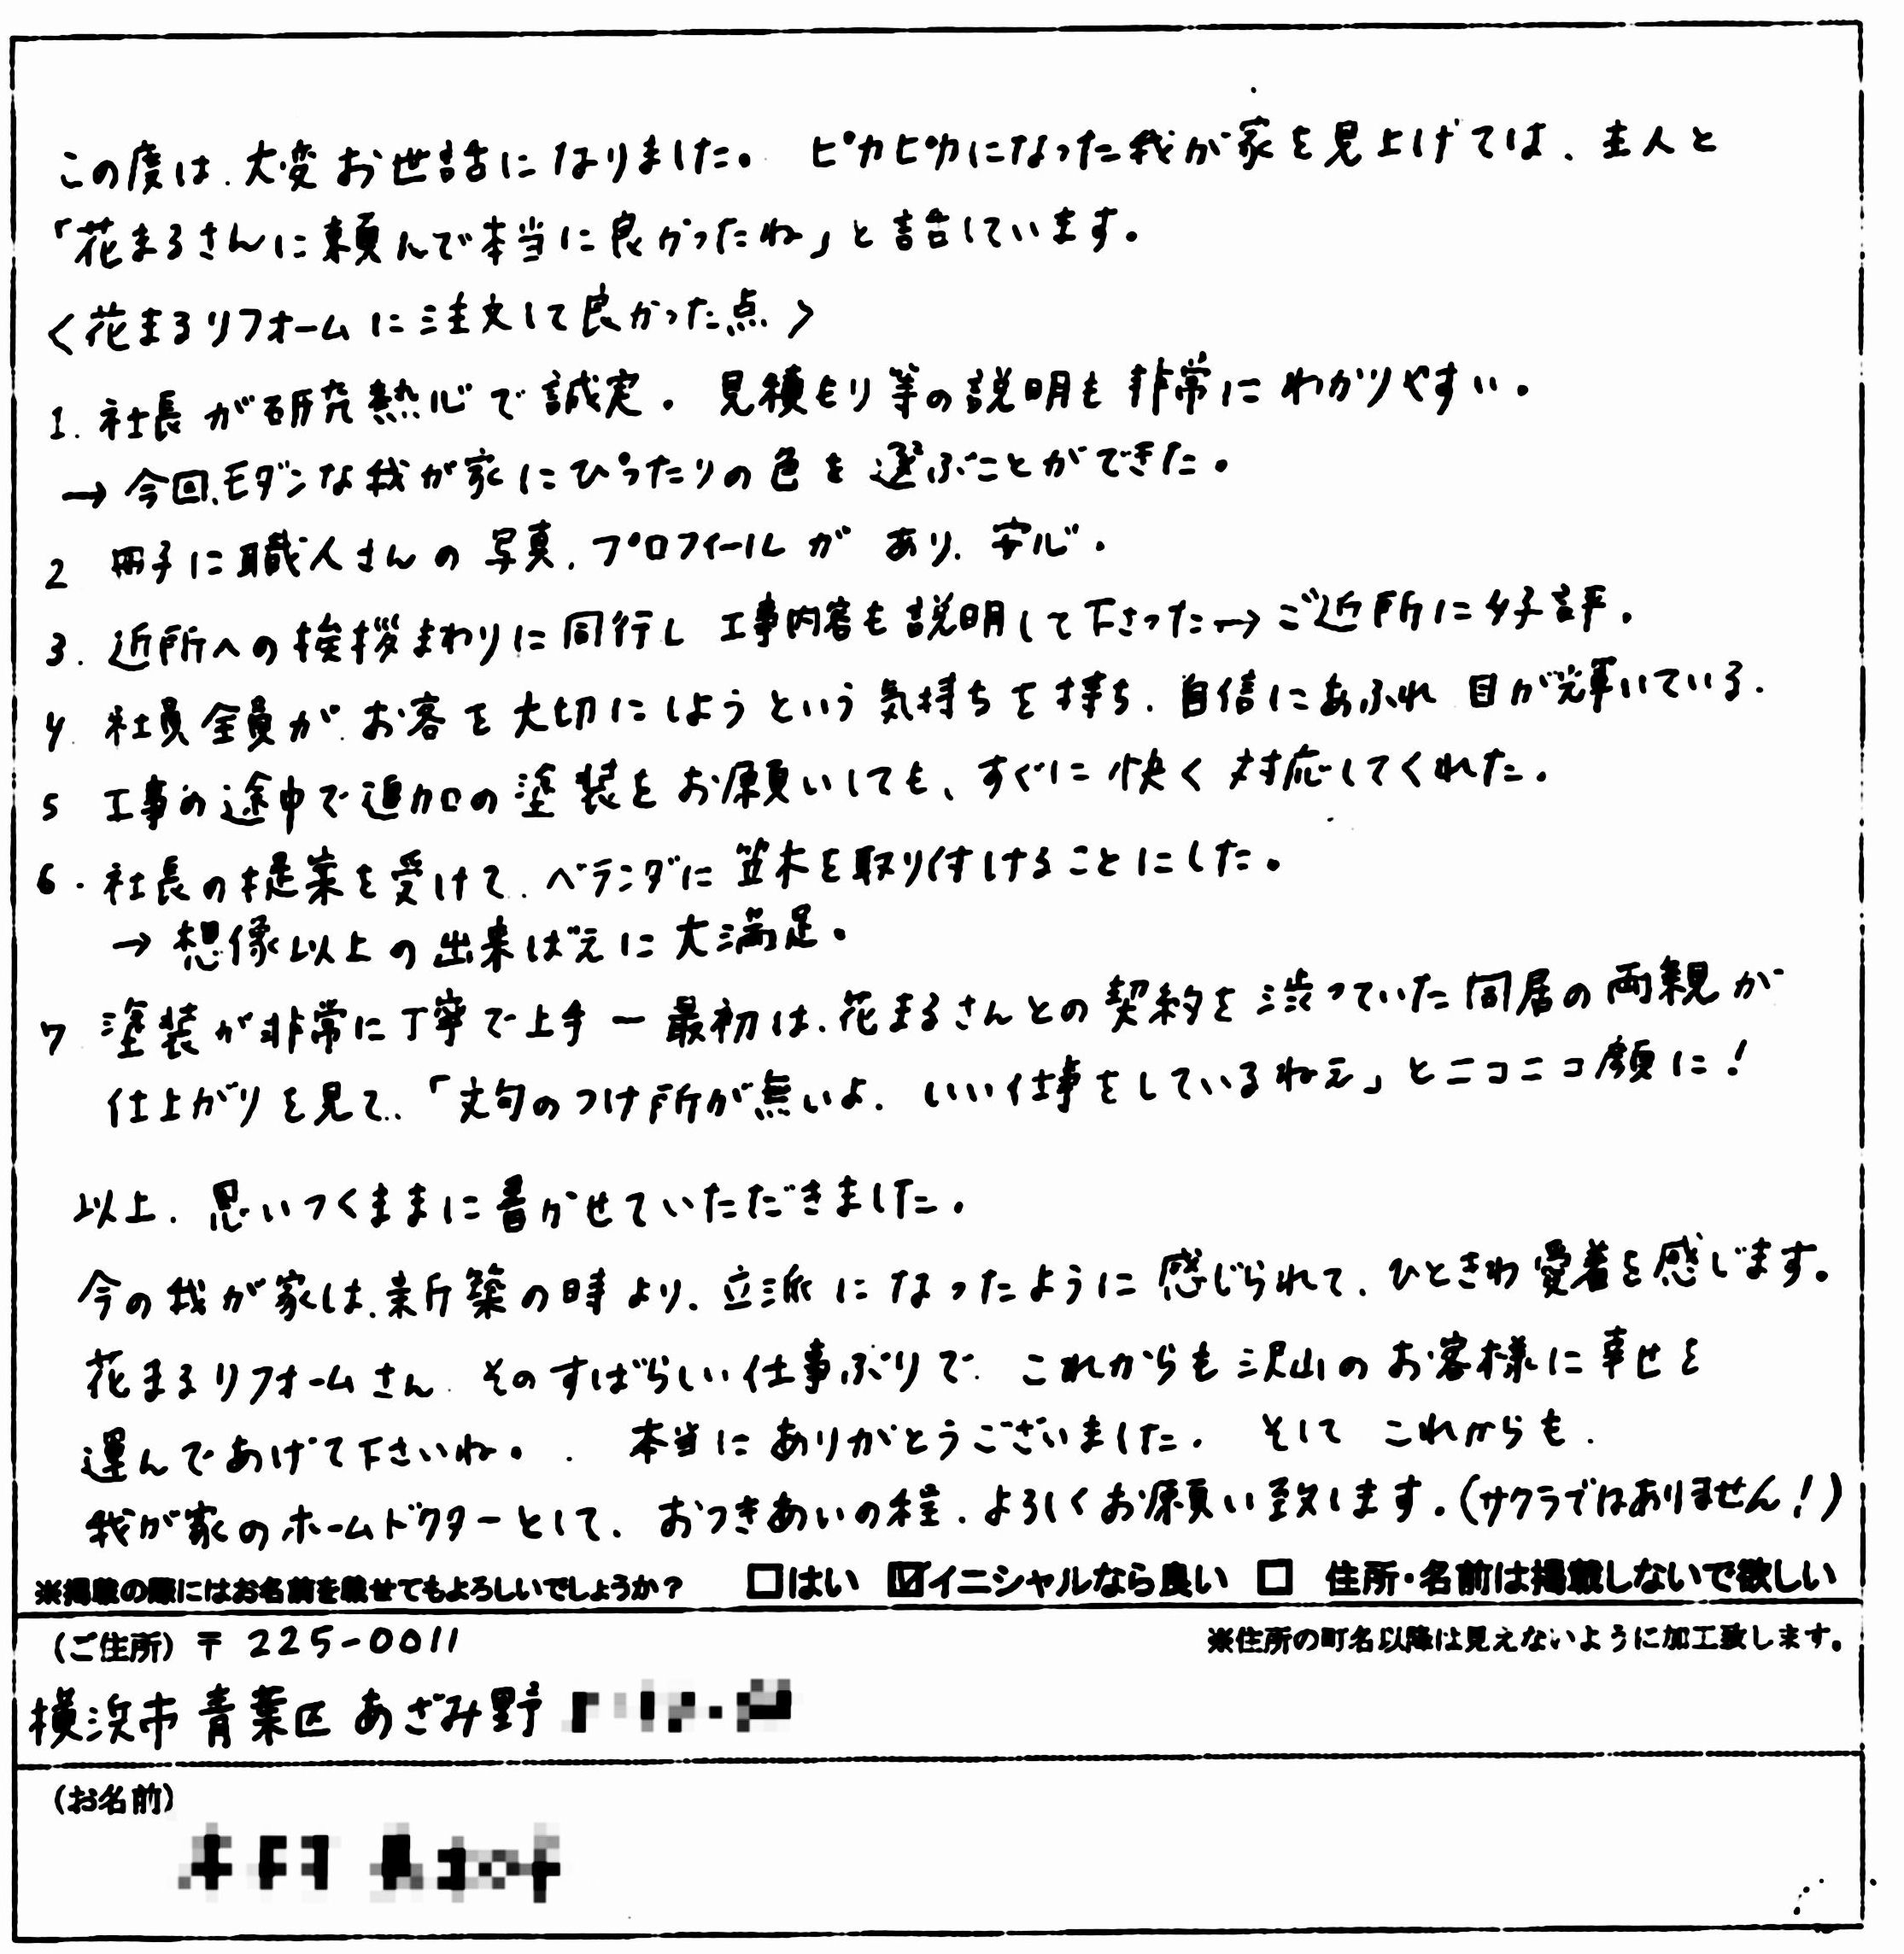 この度は、大変お世話になりました。 ピカピカになった我が家を見上げては、主人と
「花まるさんに頼んで本当に良かったね」と話しています。
〈花まるリフォームに注文して良かった点〉
1. 社長が研究熱心で誠実。 見積もり等の説明も非常にわかりやすい。
→ 今回、モダンな我が家にぴったりの色を選ぶことができた。
2 冊子に職人さんの写真、プロフィールが あり、安心。
3. 近所への挨拶まわりに同行し 工事内容も説明して下さった→ご近所に好評。
4. 社員全員が、お客を大切にしようという気持ちを持ち、自信にあふれ 目が輝いている。
5 工事の途中で追加の塗装をお願いしても、すぐに快く対応してくれた。
6. 社長の提案を受けて、ベランダに笠木を取り付けることにした。
→ 想像以上の出来ばえに大満足。
7 塗装が非常に丁寧で上手 ー 最初は、花まるさんとの契約を渋っていた同居の両親が
仕上がりを見て、「文句のつけ所が無いよ、いい仕事をしているねえ」とニコニコ顔に!
以上、思いつくままに書かせていただきました。
今の我が家は、新築の時より、立派になったように感じられて、ひときわ愛着を感じます。
花まるリフォームさん、そのすばらしい仕事ぶりで、これからも沢山のお客様に幸せを
運んであげて下さいね。 本当にありがとうございました。 そして これからも、
我が家のホームドクターとして、おつきあいの程、よろしくお願い致します。(サクラではありません!)
※掲載の際にはお名前を載せてもよろしいでしょうか? □はい ☑イニシャルなら良い □ 住所・名前は掲載しないで欲しい
(ご住所) 〒 225-0011 ※住所の町名以降は見えないように加工致します。
横浜市青葉区あざみ野
(お名前)